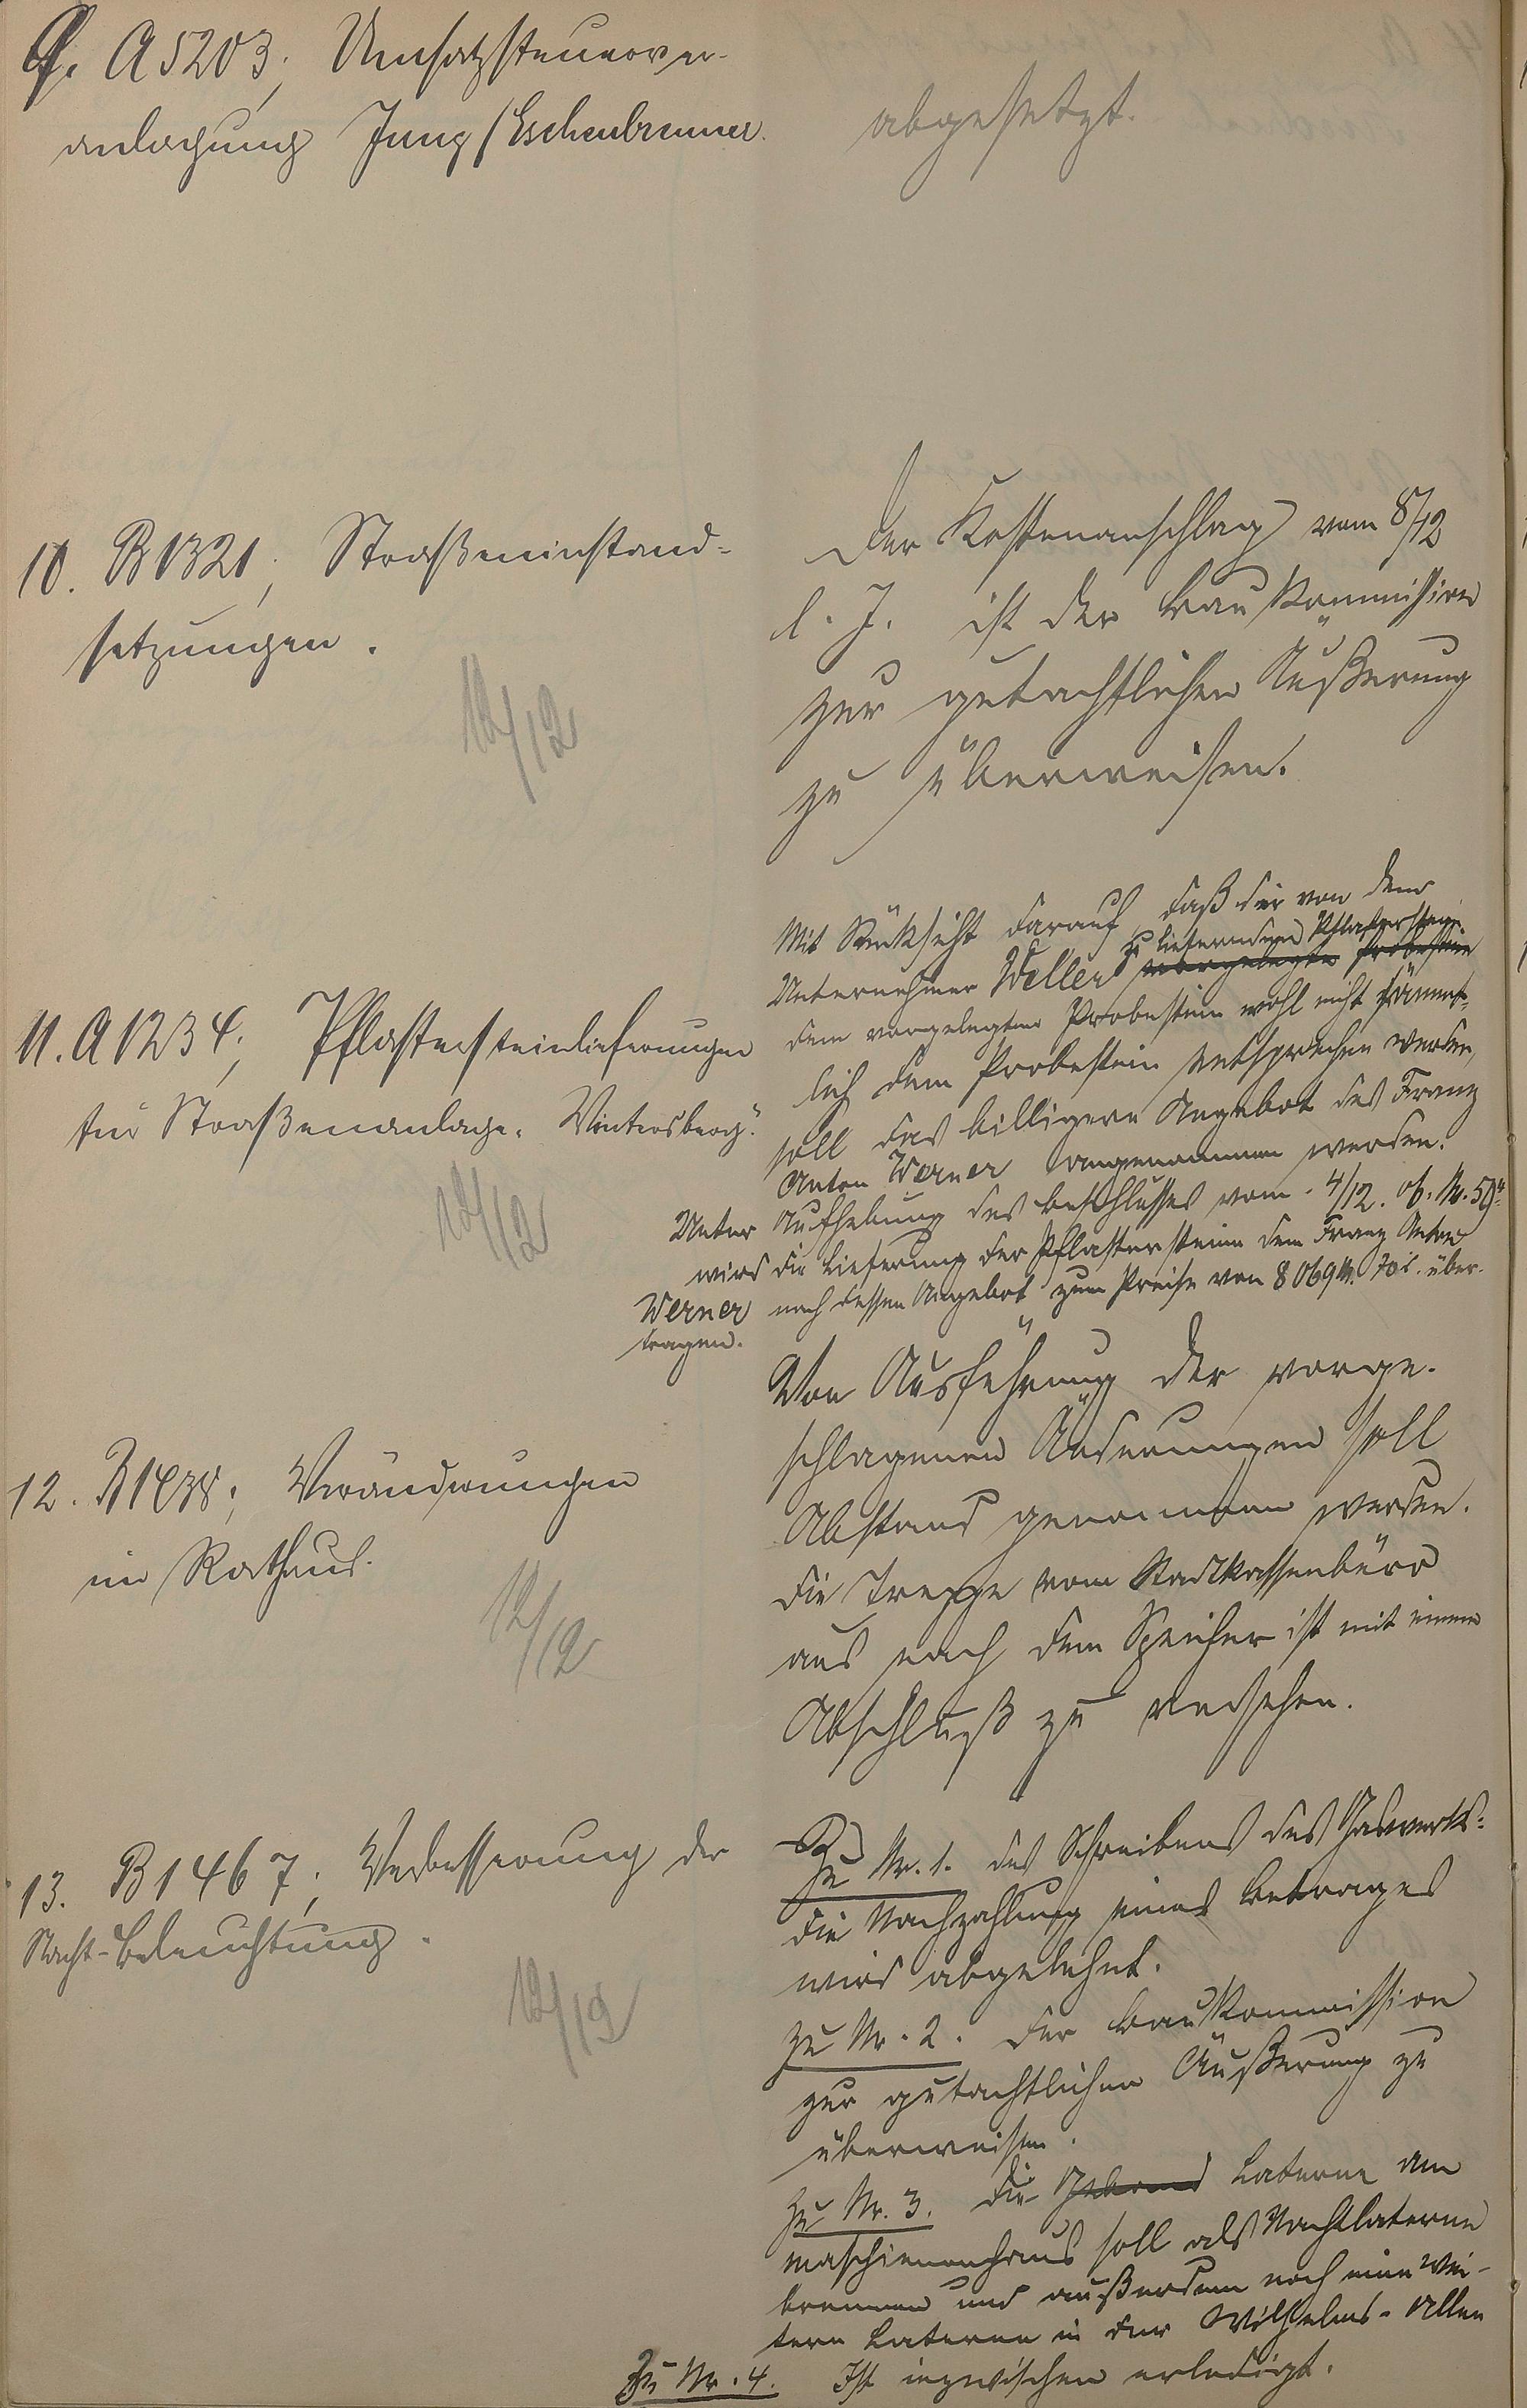 9. A 5203; Umsatzsteuerver-
anlagung Jung/Eschenbrenner.
abgesetzt.
10. B 1321; Straßeninstand-
setzungen.
12/12
Der Kostenanschlag vom 8/12
l. J. ist der Baukommission
zur gutachtlichen Äußerung
zu überweisen.
11. A 1234; Pflastersteinlieferungen
für Straßenanlage „Wintersberg".
12/12
Mit Rücksicht darauf, daß die von dem
zu liefernden Pflastersteine
Unternehmer Weller vorgelegte Probestein
dem vorgelegten Probestein wohl nicht sämmt-
lich dem Probestein entsprechen werden,
soll das billigere Angebot des Franz
Anton Werner angenommen werden.
Unter Aufhebung des Beschlusses vom 4/12. ob. Nr. 59
wird die Lieferung der Pflastersteine dem Franz Anton
Werner nach dessen Angebot zum Preise von 8069 M. 70 ₰. über-
tragen.
12. Veränderungen
im Rathaus.
12/12
Von Ausführung der vorge-
schlagenen Änderungen soll
Abstand genommen werden.
Die Treppe vom Stadtkassenbüro
aus nach dem Speicher ist mit einem
Abschluß zu versehen.
13. B 1467; Verbesserung der
Nacht-Beleuchtung.
12/12
Zu Nr. 1. des Schreibens des Gaswerks:
die Nachzahlung eines Betrages
wird abgelehnt.
Zu Nr. 2. Der Baukommission
zur gutachtlichen Äußerung zu
überweisen.
Zu Nr. 3. Die Laterne am
Maschienenhaus soll als Nachtlaterne
brennen und außerdem noch eine wei-
tere Laterne in der Wilhelms-Allee
Zu Nr. 4. Ist inzwischen erledigt.